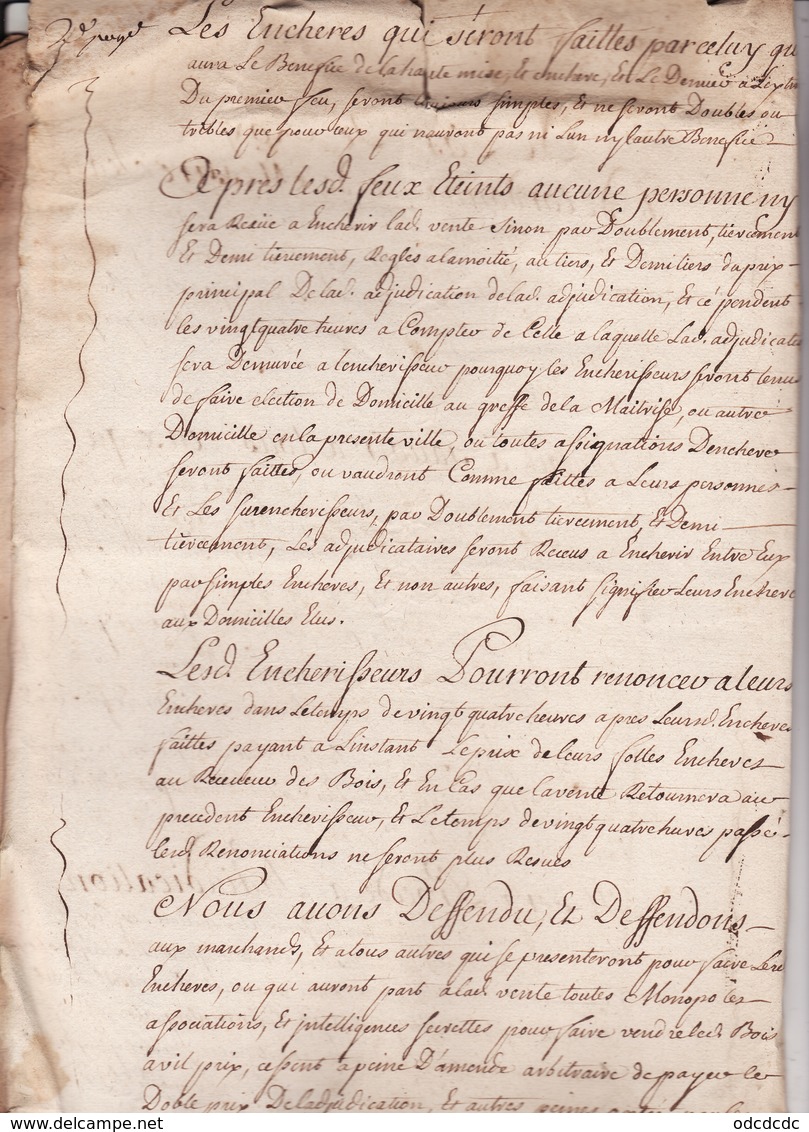 2.e page
Les Encheres qui seront faittes par celuy qu
aura Le Benefice de la haute mise, Et enchere, Et Le Dernier a
Du premier feu, seront simples, Et ne seront Doubles ou
tribles que pour ceux qui nauront pas ni Lun ny lautre Benefice
Apres lesd. feux Eteints aucune personne ny
sera Receüe a Encherir lad. vente sinon par Doublement, tiercement
Et Demi tiercement, Reglés a la moitié, au tiers, Et Demi tiers du prix
principal De lad. adjudication de lad. adjudication, Et cé pendent
les vingt quatre heures a Compter de Celle a laquelle Lad. adjudicat
sera Demurée a lencherisseur pourquoy les Encherisseurs seront tenu
de faire election de Domicille au greffe de la Maitrise, ou autre
Domicille en la presente ville, ou toutes assignations Denchere
seront faittes, ou vaudront Comme faittes a Leurs personnes
Et Les surencherisseurs, par Doublement tiercement, Et Demi
tiercement, Les adjudicataires seront Receus a Encherir Entre Eux
par simples Encheres, Et non autres, faisant signifier Leurs Enchere
aux Domicilles Elus.
Lesd. Encherisseurs Pourront renoncer a leurs
Encheres dans Le temps de vingt quatre heures apres Leursd. Encheres
faittes payant a Linstant Le prix de leurs folles Encheres
au Receveur des Bois, Et En Cas que la vente Retournera au
precedent Encherisseur, Et Le temps de vingt quatre hures passé
lesd. Renonciations ne seront plus Resues
Nous auons Deffendu, Et Deffendons
aux marchands, Et a tous autres qui se presenteront pour faire
Encheres, ou qui auront part a lad. vente toutes Monopoles
associations, Et intelligences secrettes pour faire vendre lesd. Bois
a vil prix, cessent a peine D'amende arbitraire de payer le
Doble prix De ladjudication, Et autres peines
odcdcdc